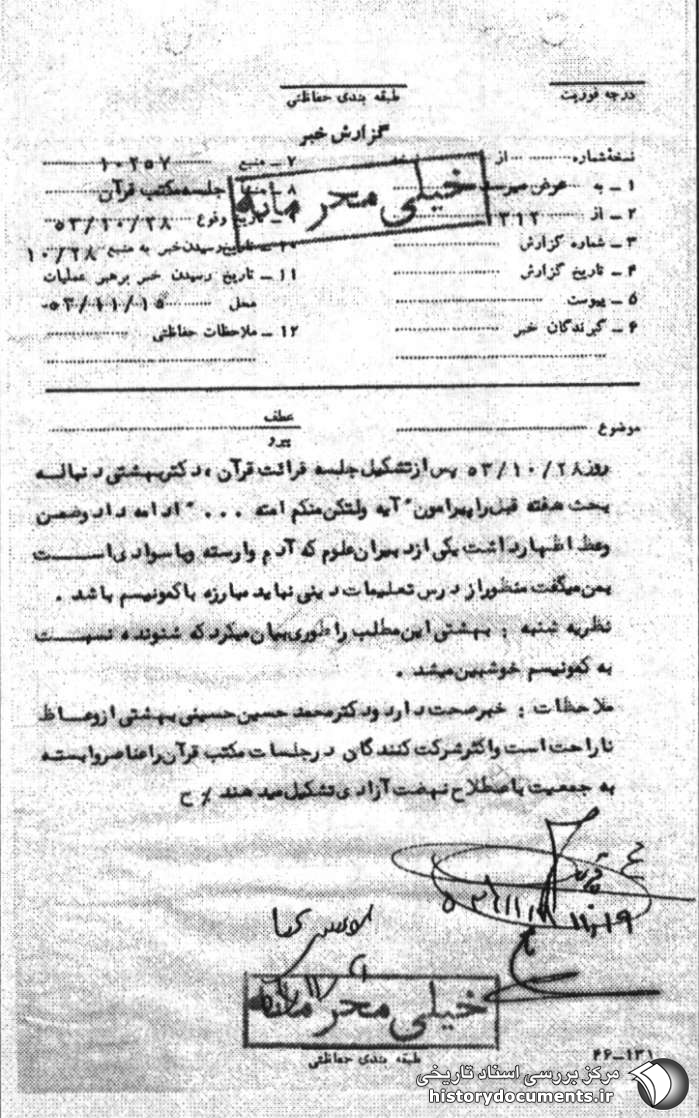 درجه فوریت
طبقه بندی حفاظتی
گزارش خبر
نسخه شماره از
۱ ـ به عرض میرسد
۲ ـ از ۳۱۲
۳ ـ شماره گزارش
۴ ـ تاریخ گزارش
۵ ـ پیوست
۶ ـ گیرندگان خبر
۷ ـ منبع ۱۰۲۵۷
۸ ـ منشأ جلسه مکتب قرآن
۹ ـ تاریخ وقوع ۵۳/۱۰/۲۸
۱۰ ـ تاریخ رسیدن خبر به منبع ۱۰/۲۸
۱۱ ـ تاریخ رسیدن خبر برهبر عملیات
محل ۵۳/۱۱/۱۵
۱۲ ـ ملاحظات حفاظتی
خیلی محرمانه
موضوع
عطف
پیرو
روز ۵۳/۱۰/۲۸ پس از تشکیل جلسه قرائت قرآن ، دکتر بهشتی دنباله
بحث هفته قبل را پیرامون "آیه ولتکن منکم امته ... " ادامه داد و ضمن
وعظ اظهار داشت یکی از دبیران علوم که آدم وارسته و با سوادی است
بمن میگفت منظور از درس تعلیمات دینی نباید مبارزه با کمونیسم باشد .
نظریه شنبه : بهشتی این مطلب را طوری بیان میکرد که شنونده نسبت
به کمونیسم خوشبین میشد .
ملاحظات : خبر صحت دارد و دکتر محمد حسین حسینی بهشتی از وعاظ
ناراحت است و اکثر شرکت کنندگان در جلسات مکتب قرآن را عناصر وابسته
به جمعیت باصطلاح نهضت آزادی تشکیل میدهند ٪ ح
۱۱/۱۹
خیلی محرمانه
طبقه بندی حفاظتی
۴۶-۱۳۱
مرکز بررسی اسناد تاریخی
historydocuments.ir